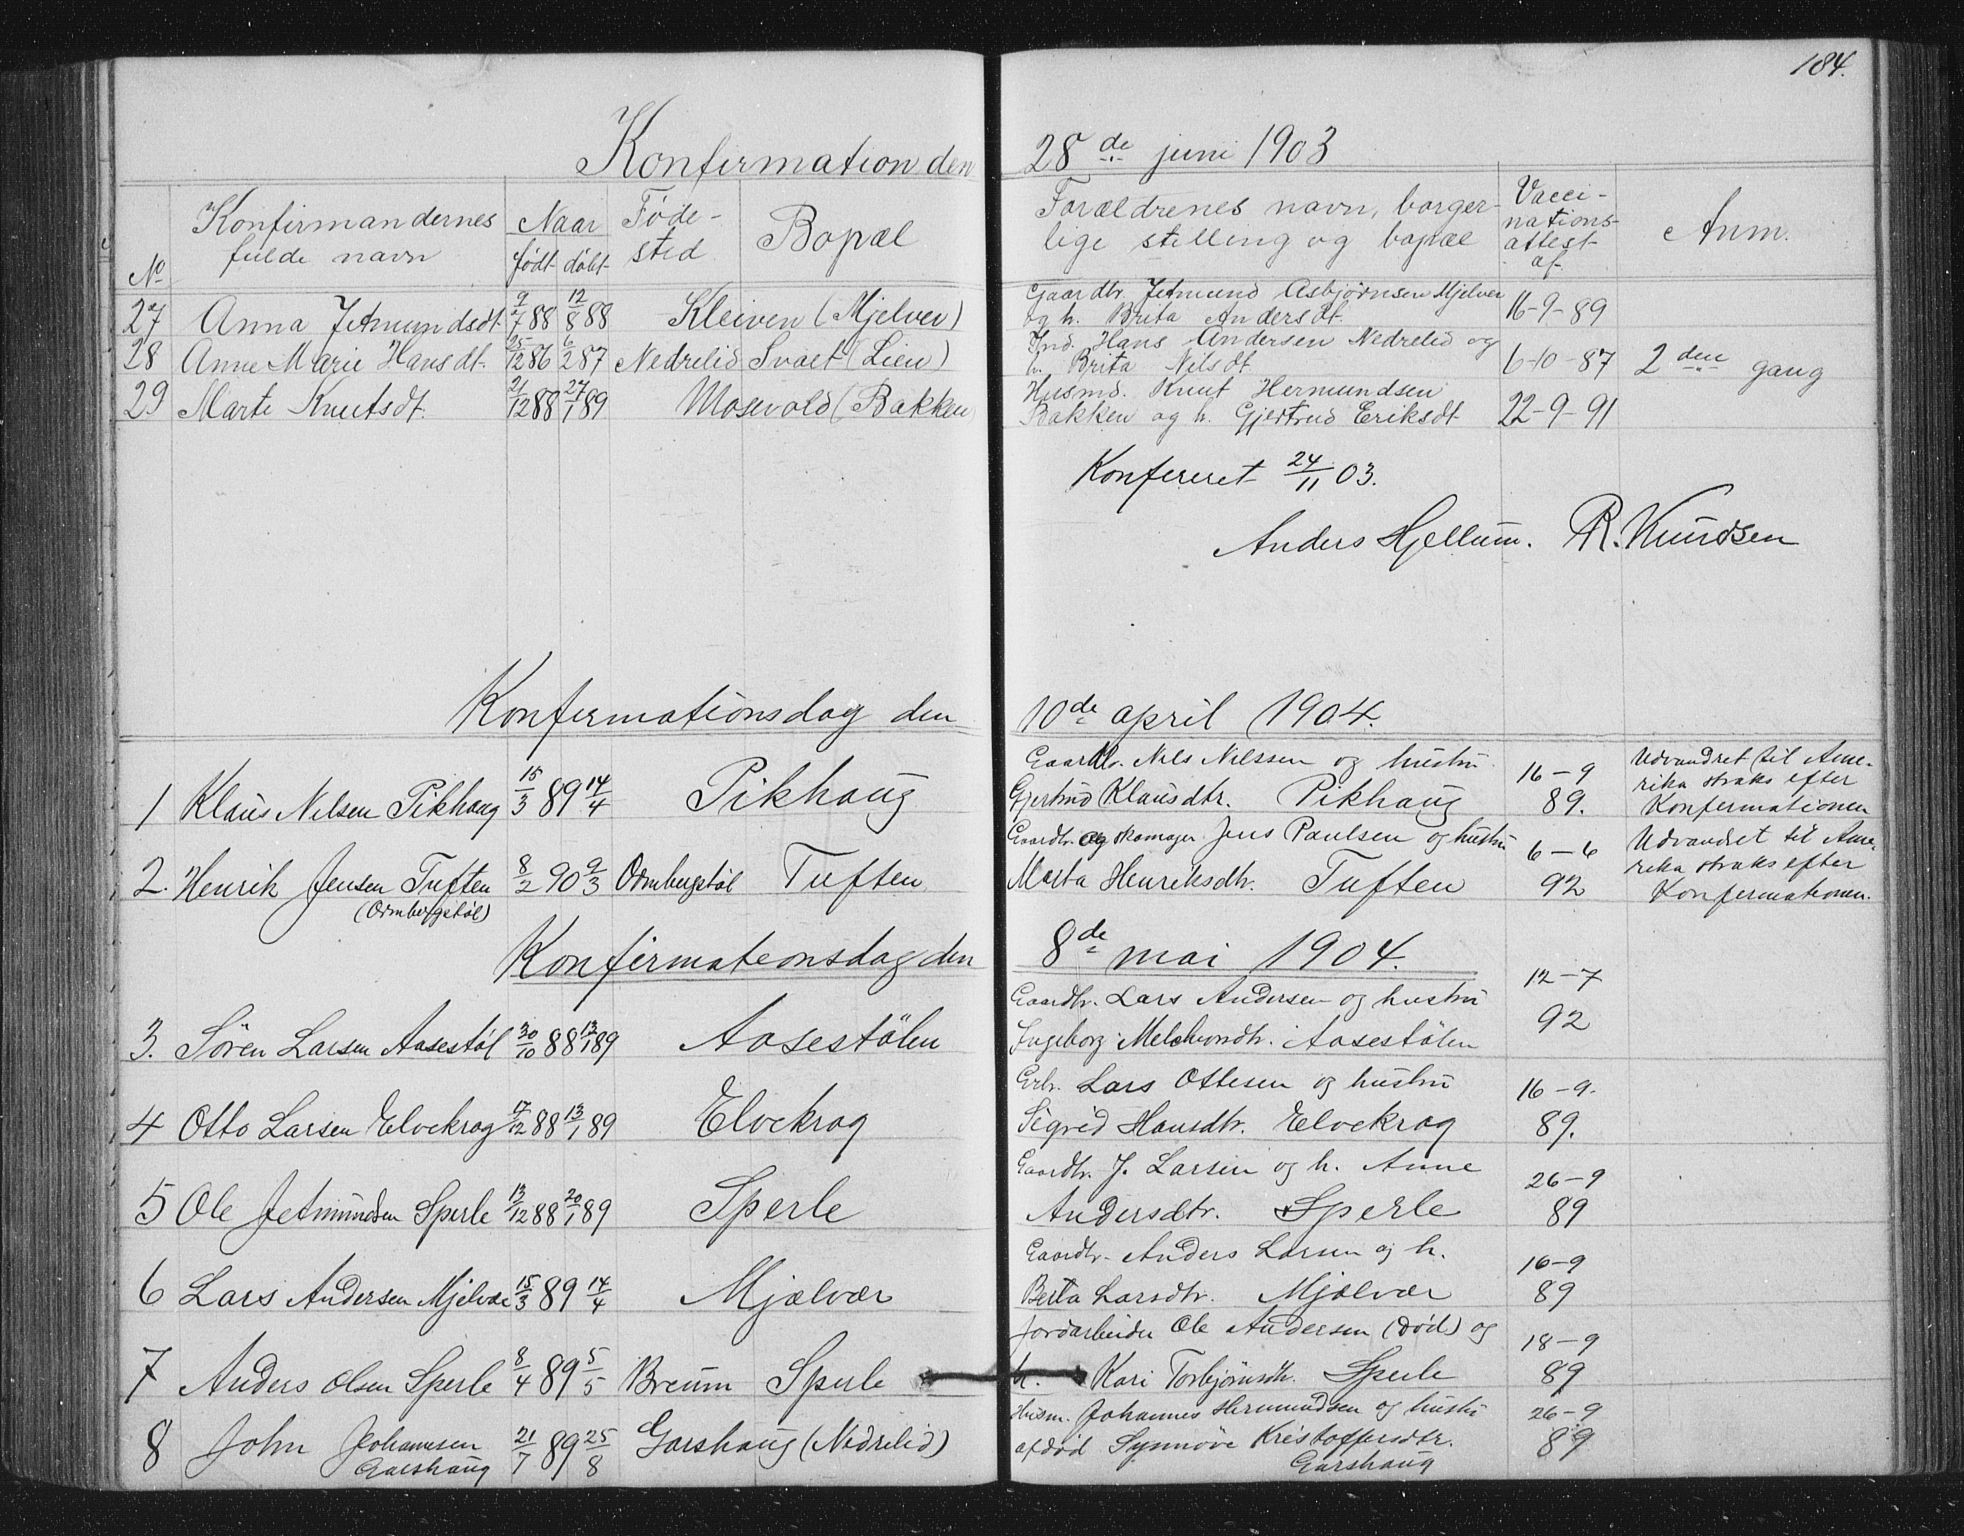 184.
Konfirmation den 28de juni 1903
No Konfirmandernes fulde navn Naar født døbt Fødested Bopæl Forældrenes navn, borgerlige stilling og bopæl Vaccinations-attest af Anm.
27 Anna Jetmundsdt. 9/7 88 12/8 88 Kleiven (Mjelver) Gaardbr. Jetmund Asbjørnsen Mjelver
og h. Brita Andersdt. 16-9-89
28 Anne Marie Hansdt. 25/12 86 6/2 87 Nedrelid Svaet (Lien) Ind. Hans Andersen Nedrelid og
h. Brita Nilsdt 6-10-87 2den gang
29 Marte Knutsdt. 21/12 88 27/1 89 Mosevold (Bakken) Husmd. Knut Hermundsen
Bakken og h. Gjertrud Eriksdt 22-9-91
Konfereret 24/11 03.
Anders Hjellum. R. Knudsen
Konfirmationsdag den 10de april 1904.
1 Klaus Nilsen Pikhaug 15/3 89 14/4 Pikhaug Gaardbr. Nils Nilssen og hustru
Gjertrud Klausdtr. Pikhaug 16-9
89. Udvandret til Ame-
rika straks efter
Konfirmationen
2. Henrik Jensen Tuften
(Ormbergstøl) 8/2 90 9/3 Ormbergstøl Tuften Gaardbr. og skomager Jens Paulsen og hustru
Marta Henriksdtr. Tuften 6-6
92 Udvandret til Ame-
rika straks efter
Konfirmationen.
Konfirmationsdag den 8de mai 1904.
3. Søren Larsen Aasestøl 30/10 88 13/1 89 Aasestølen Gaardbr. Lars Andersen og hustru
Ingeborg Melchiorsdtr. Aasestølen 12-7
92
4 Otto Larsen Elvekrog 17/12 88 13/1 89 Elvekrog Grbr. Lars Ottesen og hustru
Sigrid Hansdtr. Elvekrog 16-9.
89.
5 Ole Jetmundsen Sperle 13/12 88 20/1 89 Sperle Gaardbr. J. Larsen og h. Anne
Andersdtr. Sperle 26-9
89
6 Lars Andersen Mjelvær 15/3 89 14/4 Mjælvær Gaardbr. Anders Larsen og h.
Berta Larsdtr. Mjælvær 16-9
89
7 Anders Olsen Sperle 8/4 89 5/5 Breum Sperle Jordarbeider Ole Andersen (død) og
h. Kari Torbjørnsdtr. Sperle 18-9
89
8 John Johannesen
Garshaug 21/7 89 25/8 Garshaug (Nedrelid) Husm. Johannes Hermundsen og hustru
afdød Synnøve Kristoffersdtr.
Garshaug 26-9
89